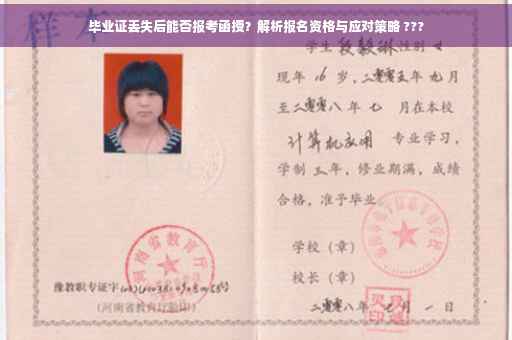 毕业证丢失后能否报考函授？解析报名资格与应对策略 ???
样本
学生 段毅琳 性别 女
现年 16 岁，二零零五年 九月
至二零零八年 七 月在本校
计算机应用 专业学习，
学制 三 年，修业期满，成绩
合格，准予毕业
学校（章）
校长（章）
二零零八年 月 一 日
河南省教育厅
豫教职专证字
（河南省教育厅验印）